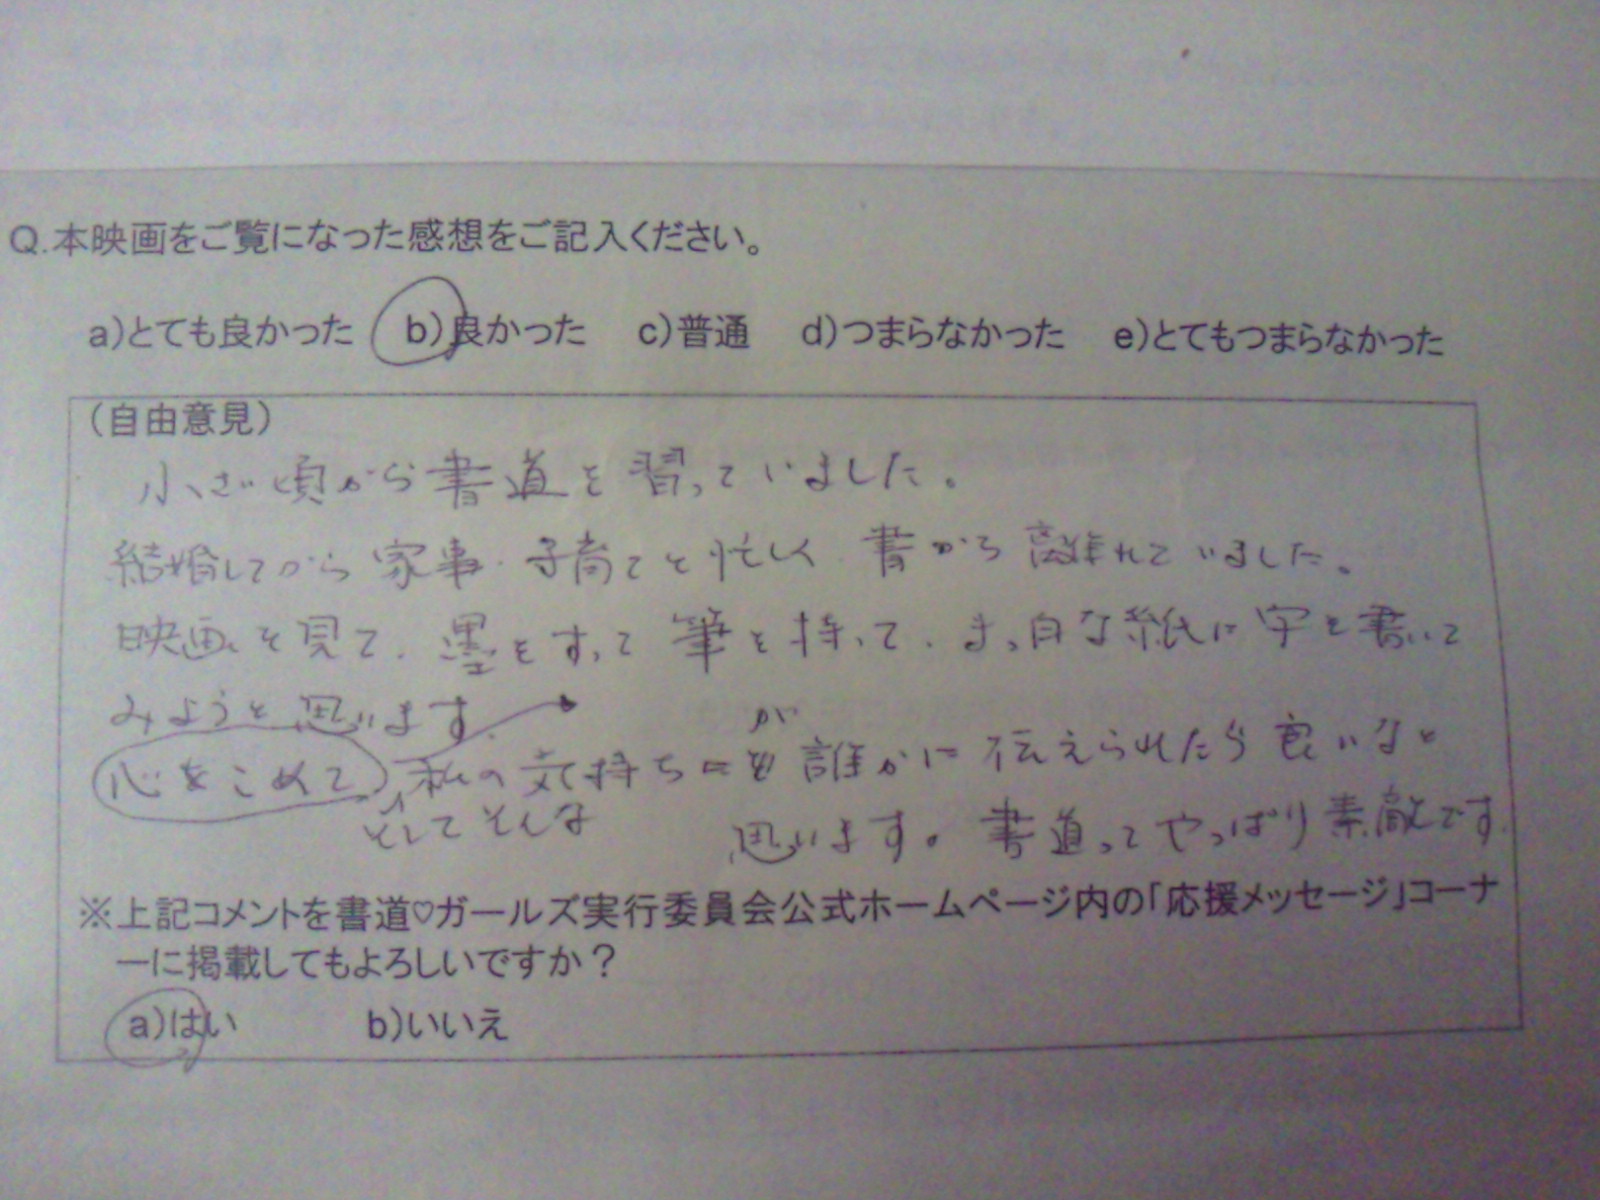 Q.本映画をご覧になった感想をご記入ください。
a)とても良かった b)良かった c)普通 d)つまらなかった e)とてもつまらなかった
（自由意見）
小さい頃から書道を習っていました。
結婚してから家事・子育てと忙しく書から離れていました。
映画を見て、墨をすって筆を持って、まっ白な紙に字を書いて
みようと思います。
が
心をこめて 私の気持ち 誰かに伝えられたら良いなと
そしてそんな
思います。書道ってやっぱり素敵です。
※上記コメントを書道♡ガールズ実行委員会公式ホームページ内の「応援メッセージ」コーナ
ーに掲載してもよろしいですか？
a)はい b)いいえ